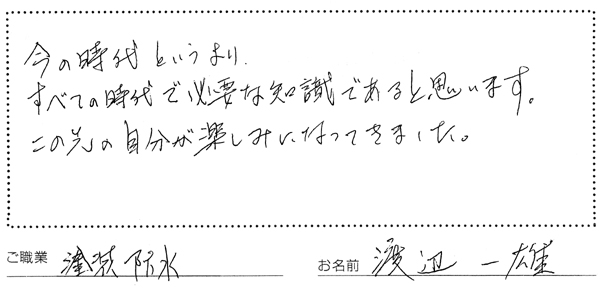 今の時代というより、
すべての時代で必要な知識であると思います。
この先の自分が楽しみになってきました。
ご職業 塗装防水 お名前 渡辺 一雄